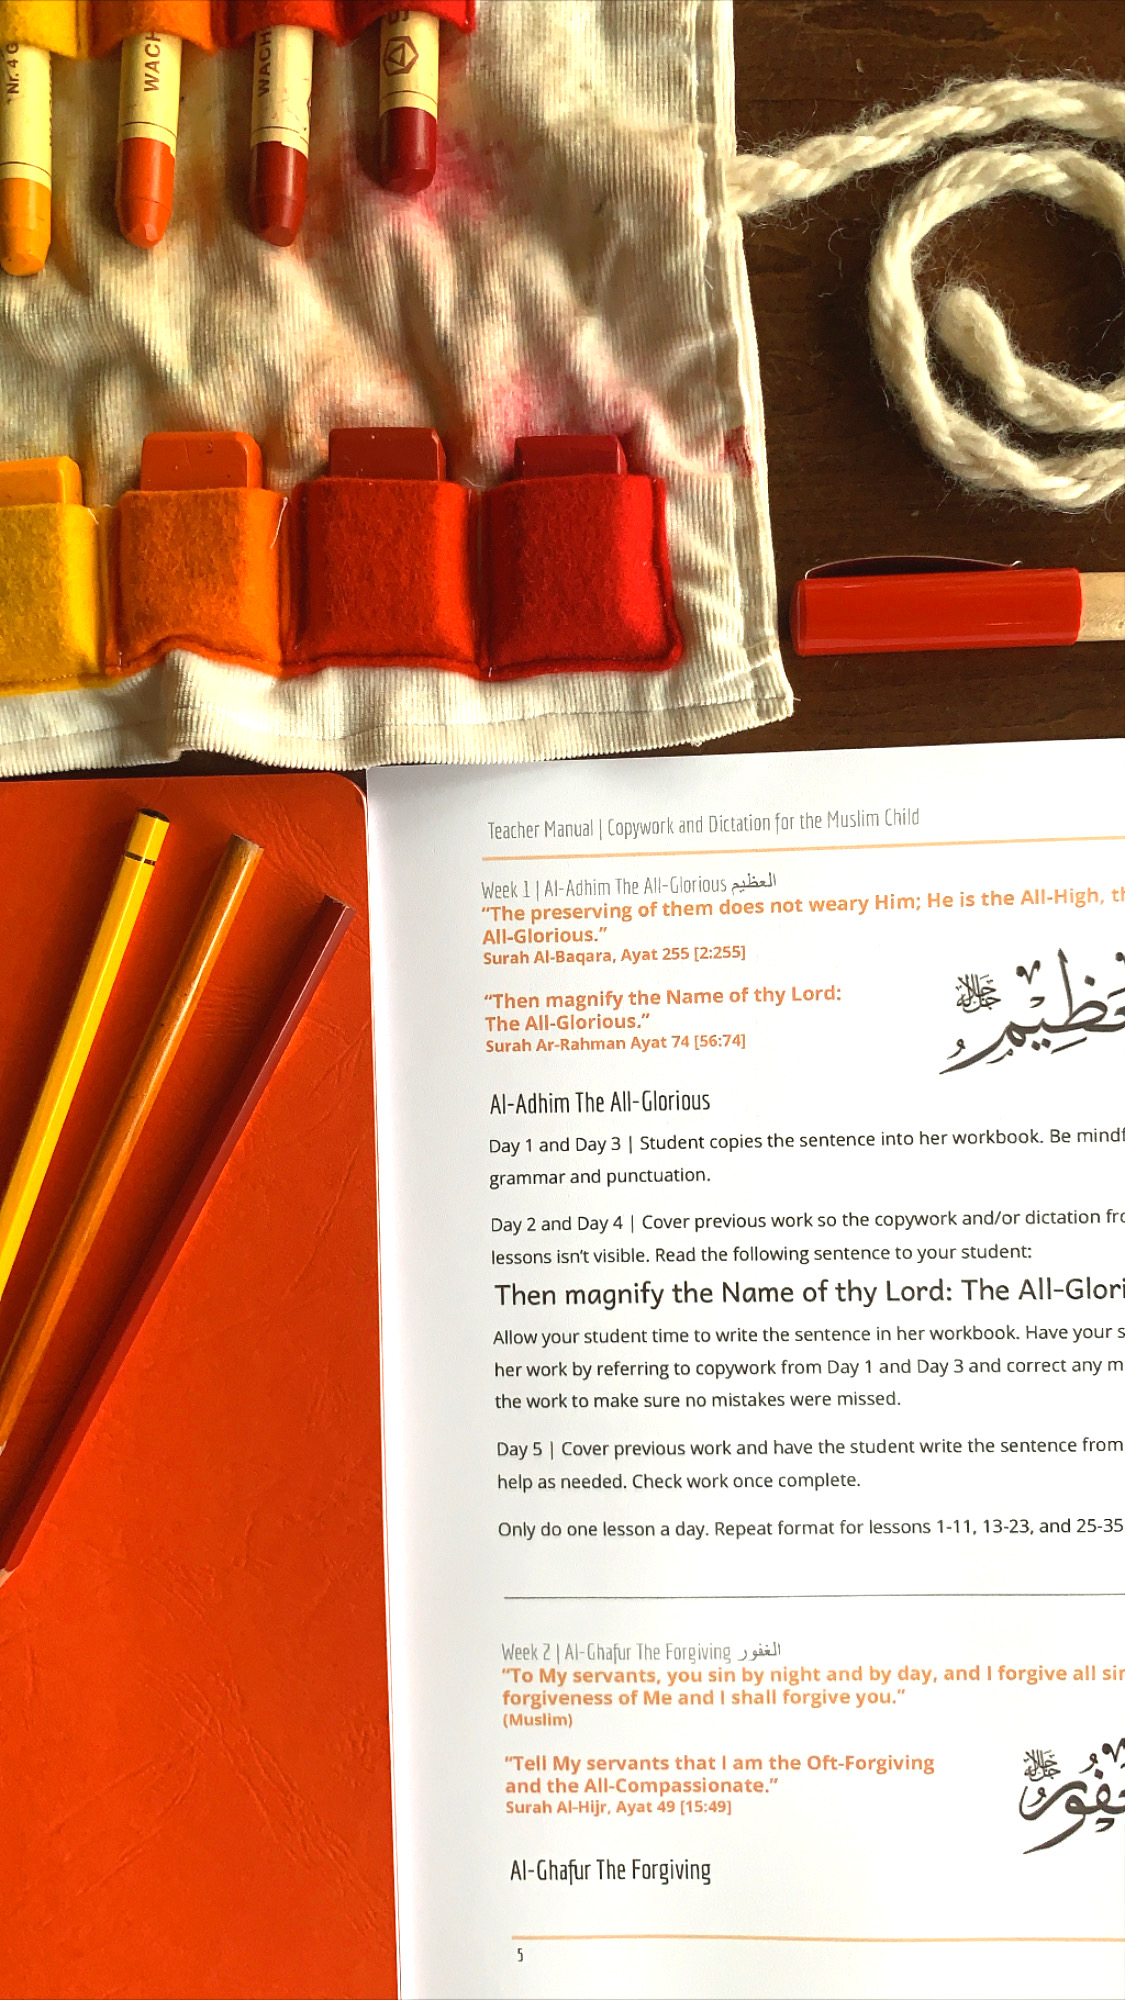 Nr. 4 G
WACH
WACH
S
Teacher Manual | Copywork and Dictation for the Muslim Child
Week 1 | Al-Adhim The All-Glorious العظيم
“The preserving of them does not weary Him; He is the All-High, th
All-Glorious.”
Surah Al-Baqara, Ayat 255 [2:255]
“Then magnify the Name of thy Lord:
The All-Glorious.”
Surah Ar-Rahman Ayat 74 [56:74]
Al-Adhim The All-Glorious
Day 1 and Day 3 | Student copies the sentence into her workbook. Be mindf
grammar and punctuation.
Day 2 and Day 4 | Cover previous work so the copywork and/or dictation fro
lessons isn’t visible. Read the following sentence to your student:
Then magnify the Name of thy Lord: The All-Glori
Allow your student time to write the sentence in her workbook. Have your s
her work by referring to copywork from Day 1 and Day 3 and correct any m
the work to make sure no mistakes were missed.
Day 5 | Cover previous work and have the student write the sentence from
help as needed. Check work once complete.
Only do one lesson a day. Repeat format for lessons 1-11, 13-23, and 25-35
Week 2 | Al-Ghafur The Forgiving الغفور
“To My servants, you sin by night and by day, and I forgive all sin
forgiveness of Me and I shall forgive you.”
(Muslim)
“Tell My servants that I am the Oft-Forgiving
and the All-Compassionate.”
Surah Al-Hijr, Ayat 49 [15:49]
Al-Ghafur The Forgiving
5